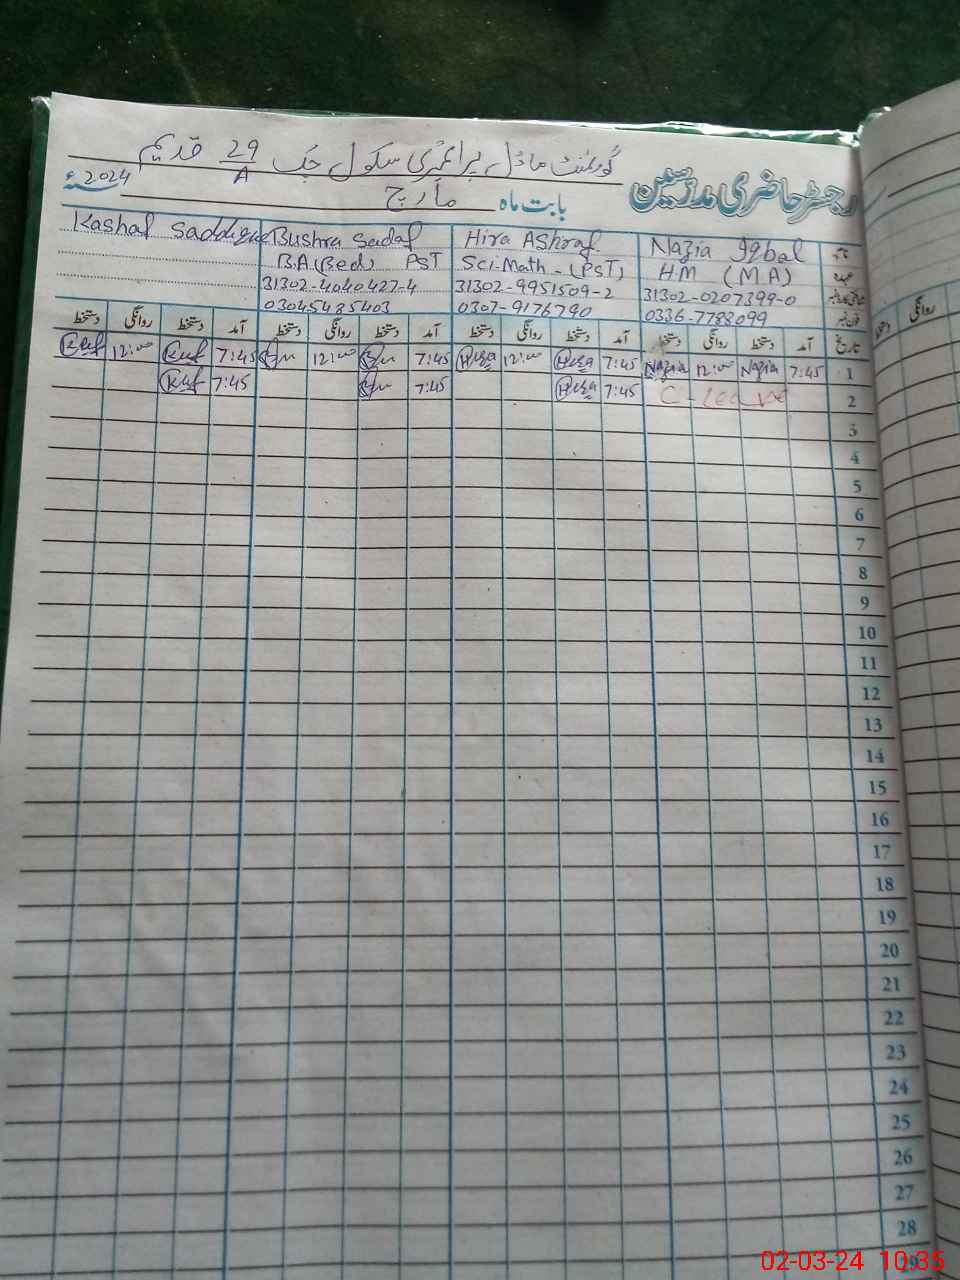 رجسٹر حاضری مدرسین گورنمنٹ ماڈل پرائمری سکول چک 29/A قدیم
بابت ماہ مارچ 2024ء
نام Nazia Iqbal Hira Ashraf Bushra Sadaf Kashaf Saddique
عہدہ H.M (M.A) Sci-Math-(PST) B.A(Bed) PST
31302-0207399-0 31302-9951509-2 31302-4040427-4
فون نمبر 0336-7788099 0307-9176790 03045485403
تاریخ آمد دستخط روانگی دستخط آمد دستخط روانگی دستخط آمد دستخط روانگی دستخط آمد دستخط روانگی دستخط
1 7:45 Nazia 12:00 Nazia 7:45 Hira 12:00 Hira 7:45 12:00 7:45 Kuf 12:00 Kuf
2 C-leave 7:45 Hira 7:45 7:45 Kuf
3
4
5
6
7
8
9
10
11
12
13
14
15
16
17
18
19
20
21
22
23
24
25
26
27
28
29
02-03-24 10:35